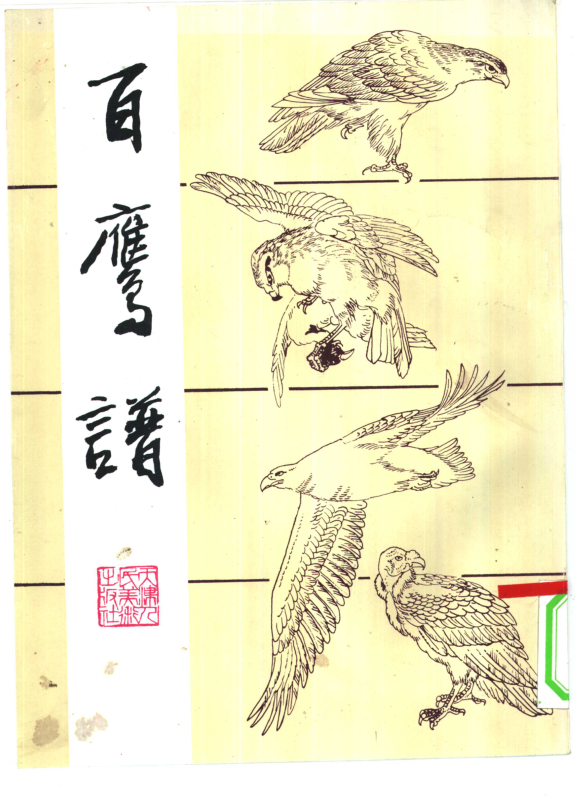 百鹰譜
天津人
民美术
出版社